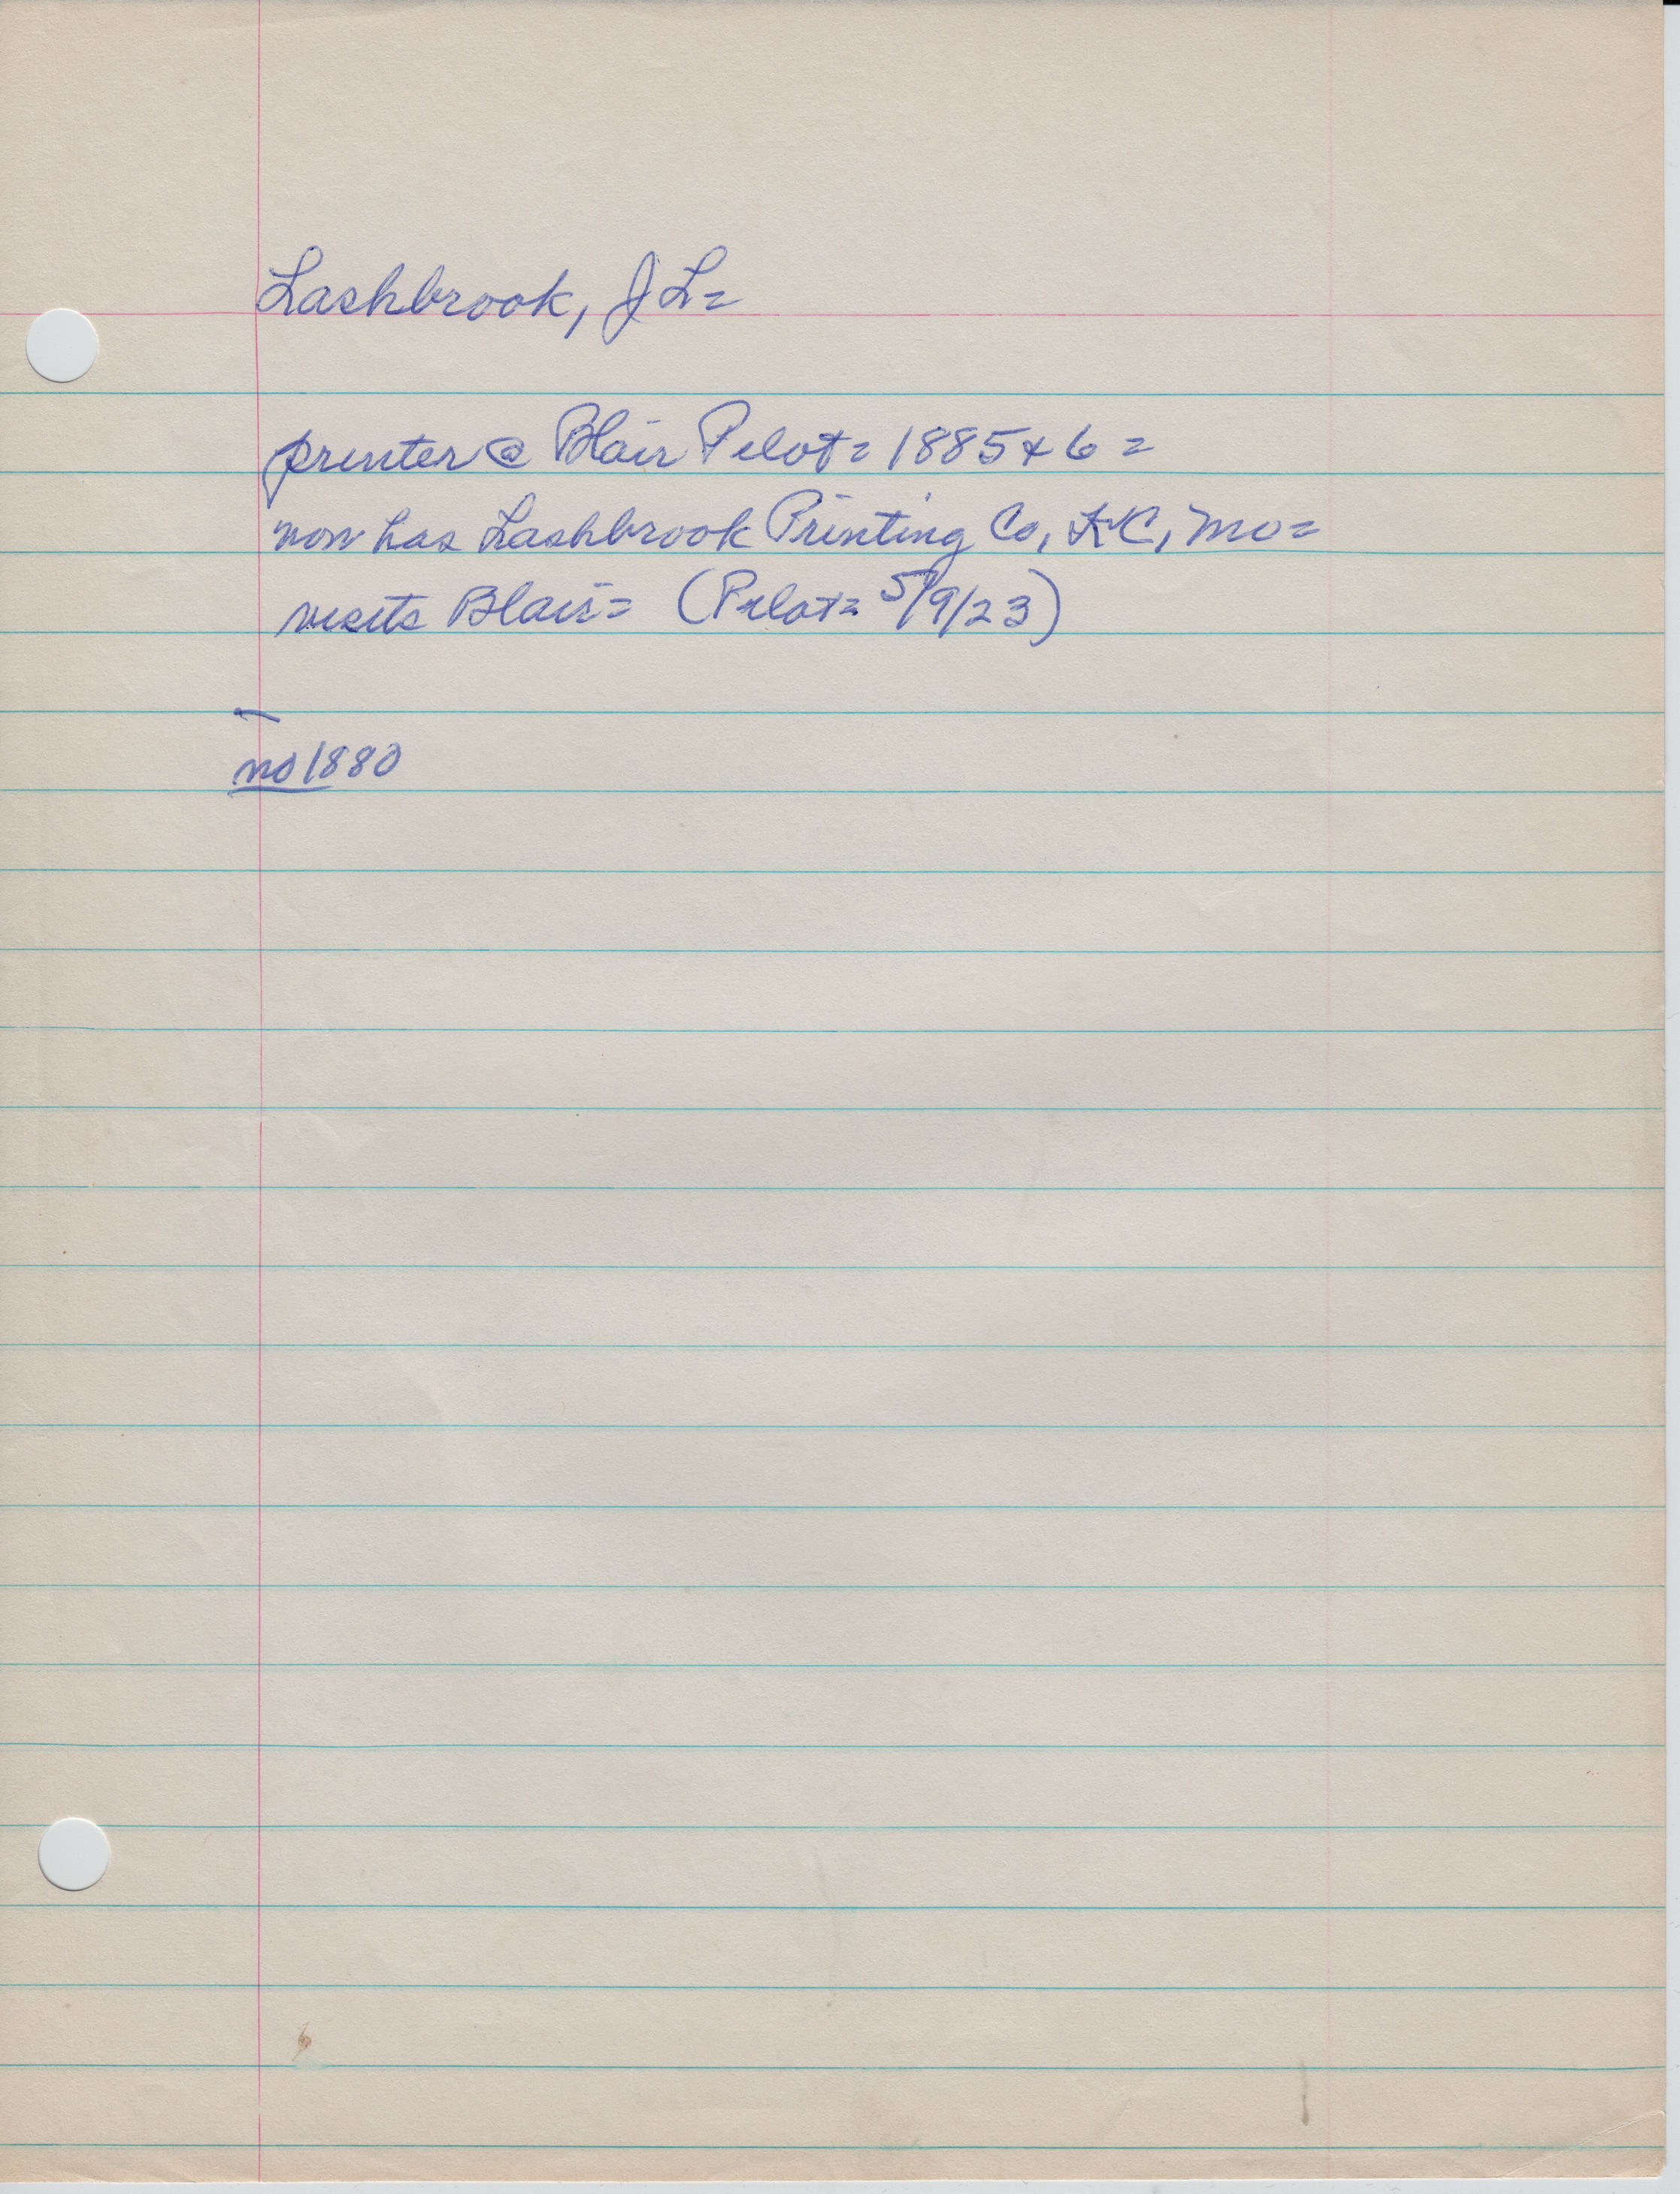 Lashbrook, J L=
printer @ Blair Pilot= 1885 & 6=
now has Lashbrook Printing Co, KC, Mo=
visits Blair= (Pilot= 5/9/23)
no 1880